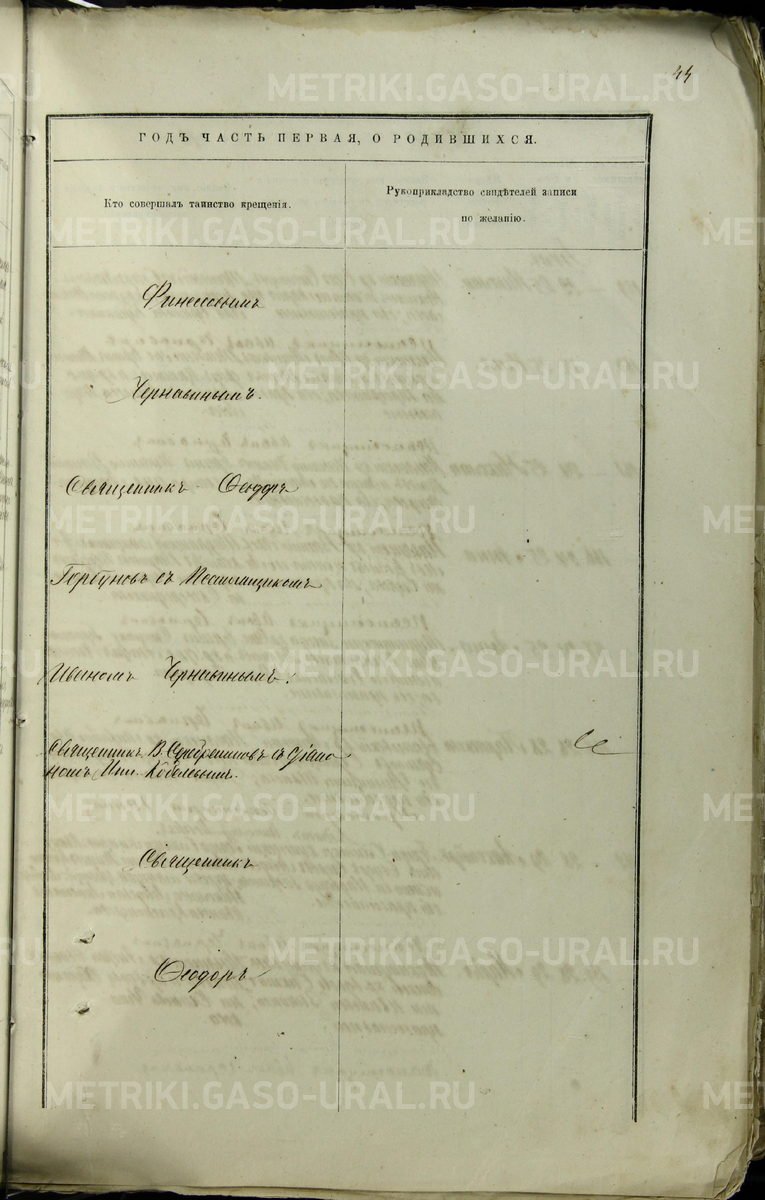 44
ГОДЪ ЧАСТЬ ПЕРВАЯ, О РОДИВШИХСЯ.
Кто совершалъ таинство крещенія.
Рукоприкладство свидѣтелей записи
по желанію.
Чернавинымъ.
Священникъ Ѳеодоръ
Горбуновъ съ Псаломщикомъ
Иваномъ Чернавинымъ.
Священникъ В. Серебренниковъ съ діако
номъ Кобелевымъ.
Священникъ
Ѳеодоръ
METRIKI.GASO-URAL.RU